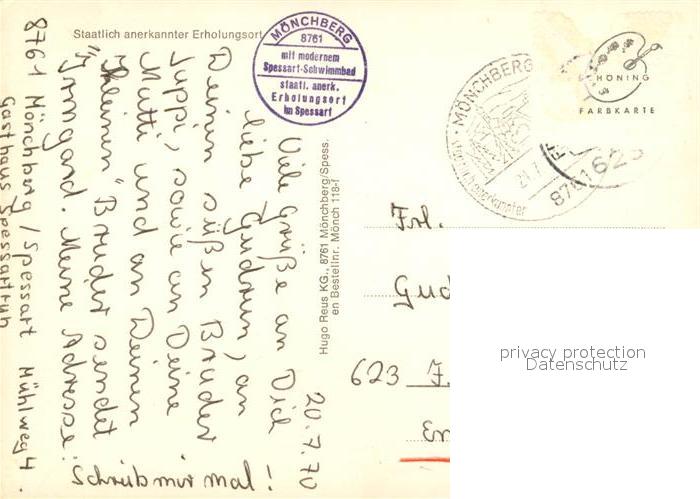 Staatlich anerkannter Erholungsort
MÖNCHBERG
8761
mit modernem
Spessart-Schwimmbad
staatl. anerk.
Erholungsort
im Spessart
MÖNCHBERG
21.7.
8761
623
SCHÖNING
FARBKARTE
Hugo Reus KG., 8761 Mönchberg/Spess.
en Bestellnr. Mönch 118-f
20.7.70
Viele Grüße an Dich
liebe Gudrun, an
Deinen süßen Bruder
Juppi, sowie an Deine
Mutti und an Deinen
"kleinen" Bruder sendet
Irmgard. Meine Adresse:
8761 Mönchberg/Spessart Mühlweg 4.
Gasthaus Spessartruh
Schreib mir mal!
Frl.
Gud
623 F.
Em
privacy protection
Datenschutz